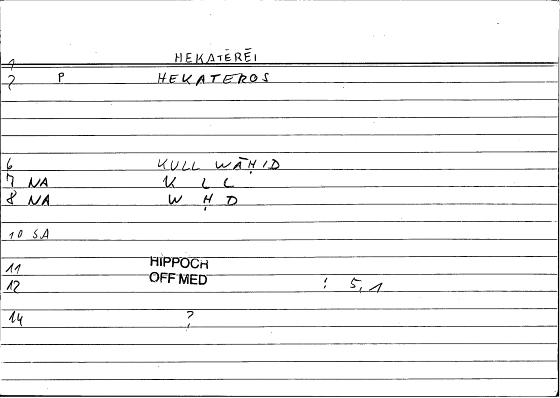 1 HEKATĒRĒI
2 P HEKATEROS
6 KULL WĀḤID
7 NA K L L
8 NA W Ḥ D
10 SA
11 HIPPOCH
12 OFF MED : 5,1
14 ?